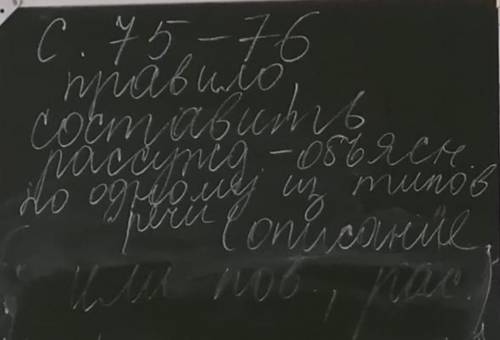 с. 75-76
правило,
составить
рассужд.-объясн.
по одному из типов
речи (описание,
или пов., рас.)